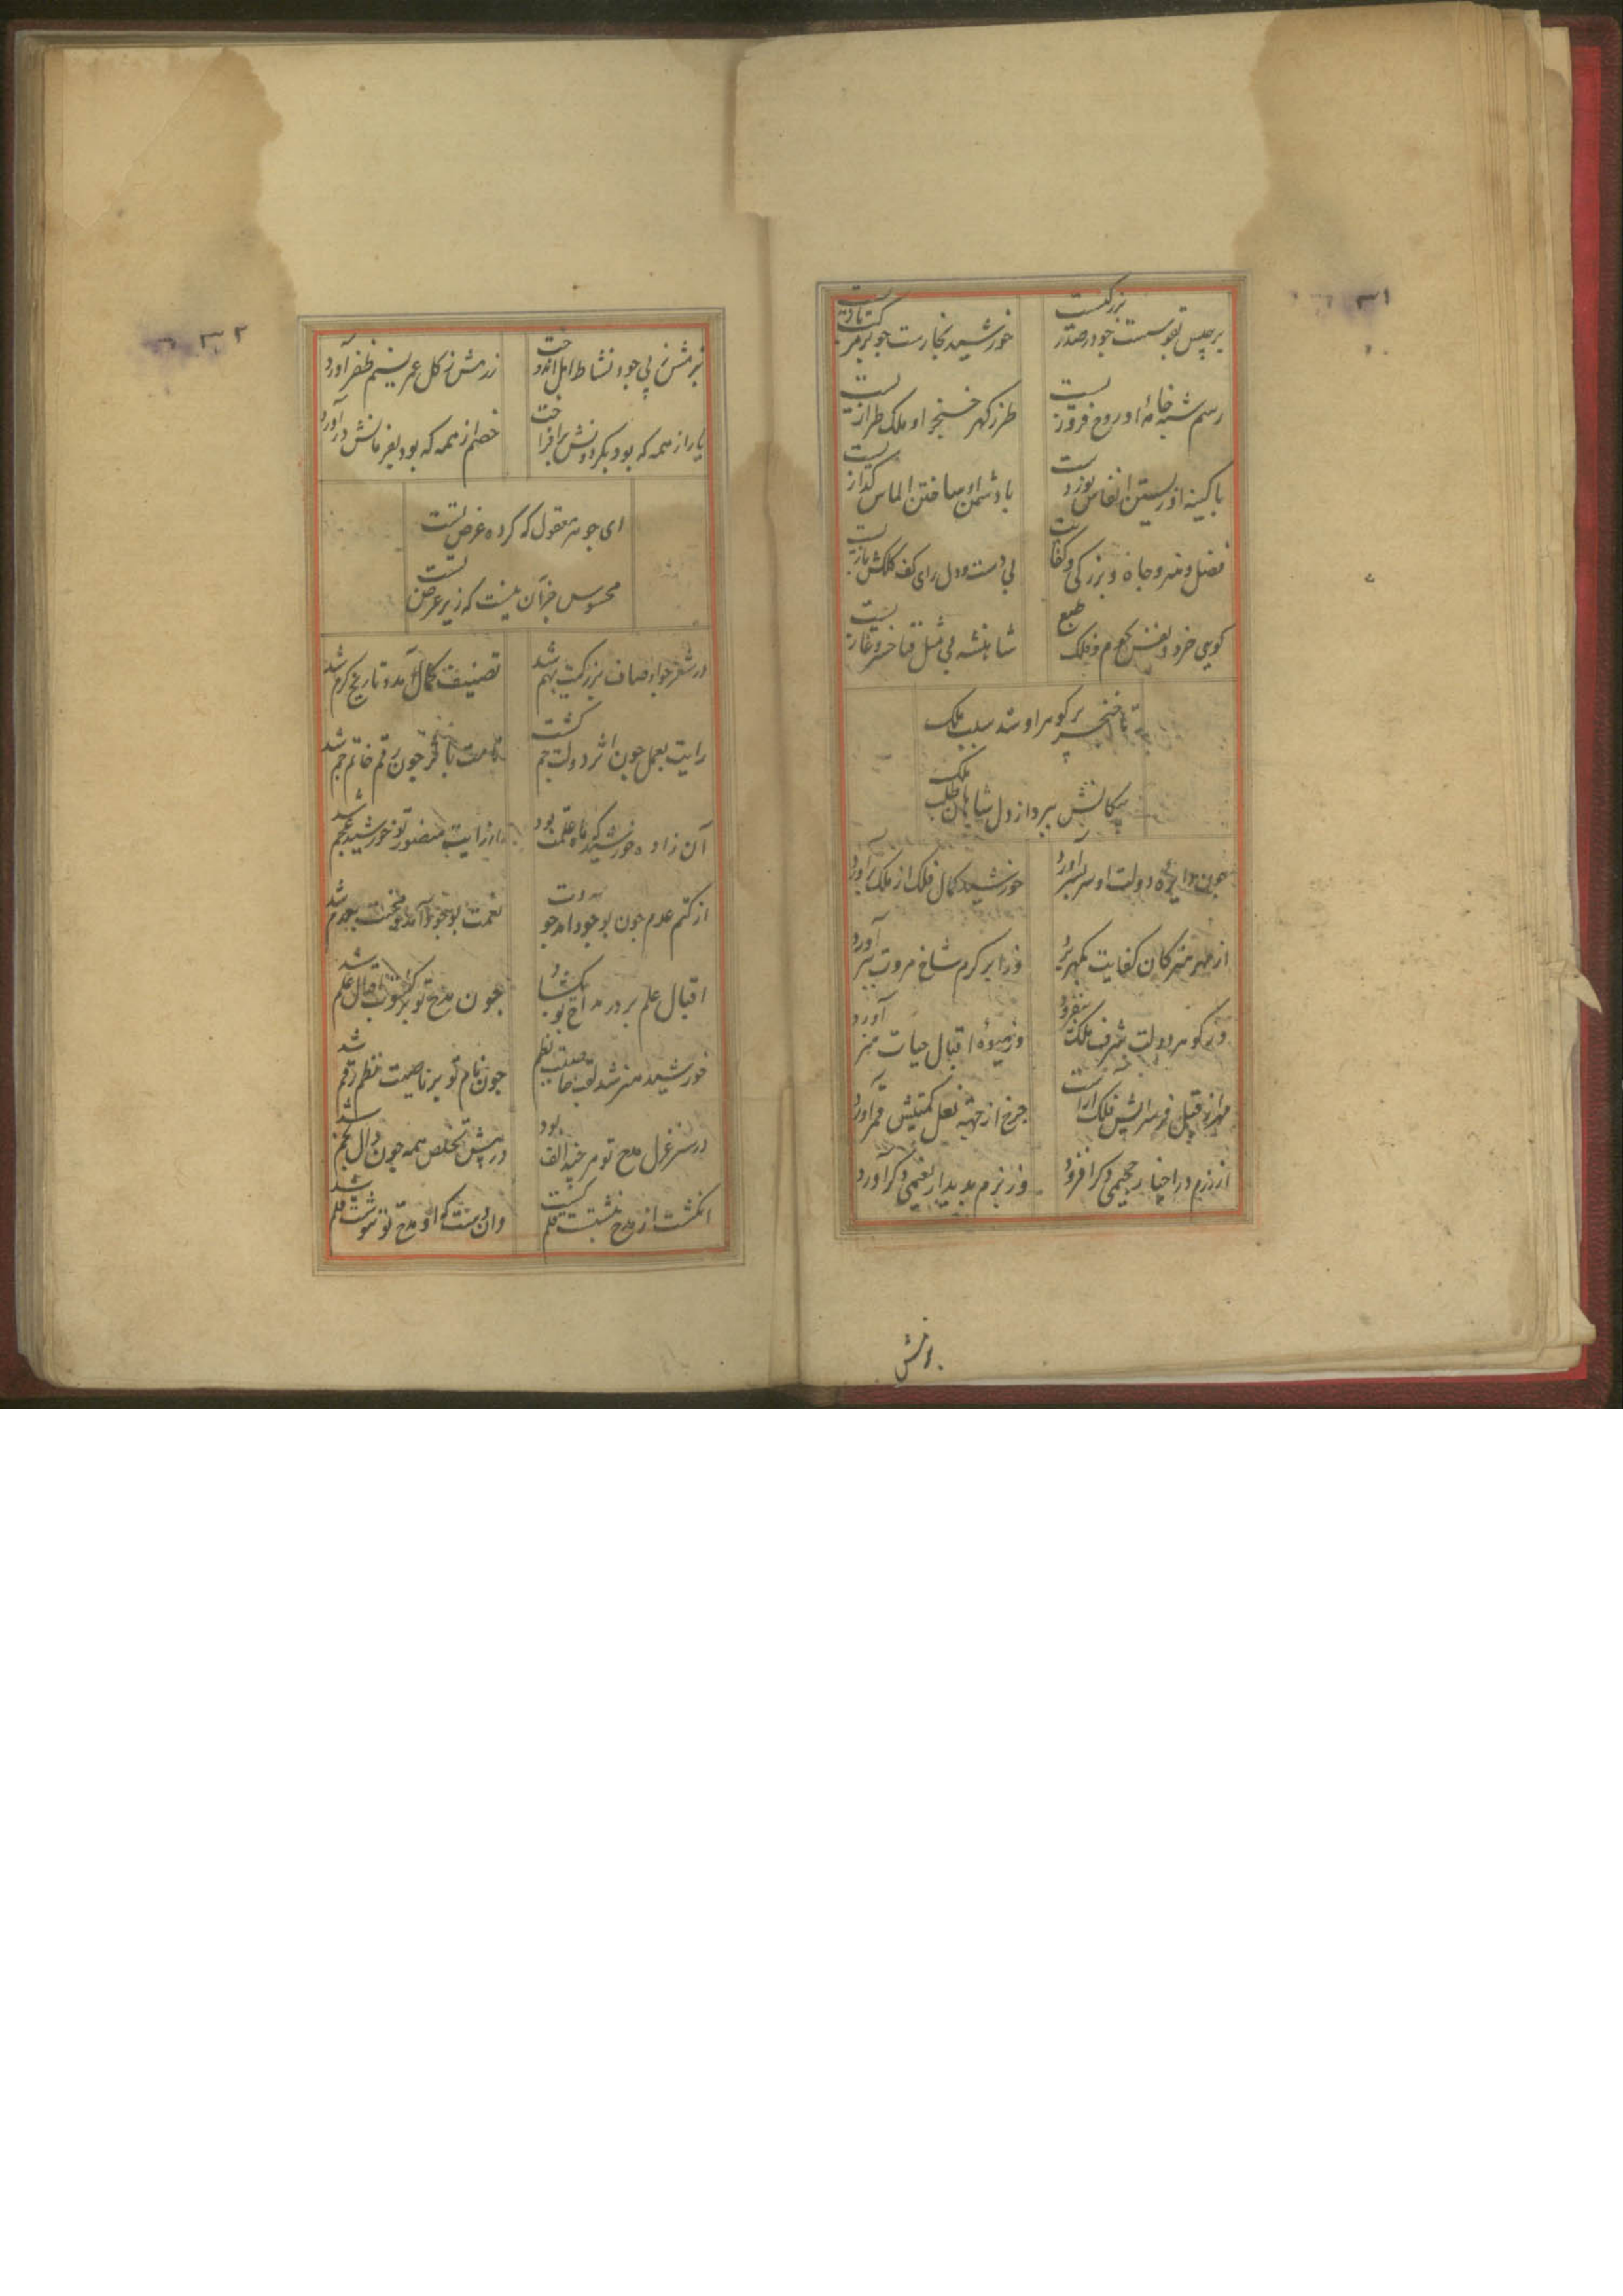 ۳۱
برجیس بقوسست چو در صدر بزرگیست
خورشید بخارست چو بر مرکب تازیست
رسم شبه خامهٔ او روح فروزیست
طرز گهر خنجر او ملک طرازیست
با کینه او زیستن انفاس
با دشمن او ساختن الماس گدازیست
فضل و هنر و جاه و بزرگی و کفایت
بی دست و دل و رای و کف و کلکش بازیست
گویی خرد و نفس و نجوم و فلک و طبع
شاهنشه بی مثل فناخسرو غازیست
تا خنجر پر گوهر او شد سلب ملک
پیکانش ببرد از دل شاهان طلب ملک
چون دایره دولت او سر بسر آورد
خورشید کمال فلک از ملک برآورد
از مهر هنر کان کفایت بگهر برد
وز ابر کرم شاخ مروت ببر آورد
وز گوهر دولت شرف ملکت بفزود
وز میوهٔ اقبال حیات هنر آورد
فلک آراست
چرخ از جهة نعل کمیتش قمر آورد
از رزم در اخبار جحیمی دگر افزود
وز بزم بدیدار نعیمی دگر آورد
بزمش
۳۲
بزمش ز پی جود نشاط امل انداخت
رزمش ز گل عمر نسیم ظفر آورد
یار از همه که بود بگردونش برافراخت
خصم از همه که بود بفرمانش درآورد
ای جوهر معقول که گرد عرض تست
محسوس جز آن نیست که زیر عرض تست
در شعر چو اوصاف بزرگیت بهم شد
تصنیف کمال آمد و تاریخ کرم شد
رایت بعمل چون اثر دولت جم گشت
نامت با چون رقم خاتم جم شد
آن زاده خورشید که ماه علمت بود
از رایت منصور تو خورشید عجم شد
از کتم عدم چون بوجود آمد جودت
نعمت بوجود آمد و محنت بعدم شد
اقبال علم بر در مداح تو بگشاد
چون مدح تو بر کسوت اقبال علم شد
خورشید هنر شد لقب صاحب نظم
چون نام تو بر ناصیت نظم رقم شد
در سر غزل مدح تو هر چند الف بود
در پیش تخلص همه چون دال بخم شد
انگشت از مدح قلم گشت
وان دست که او مدح تو ننوشت قلم شد